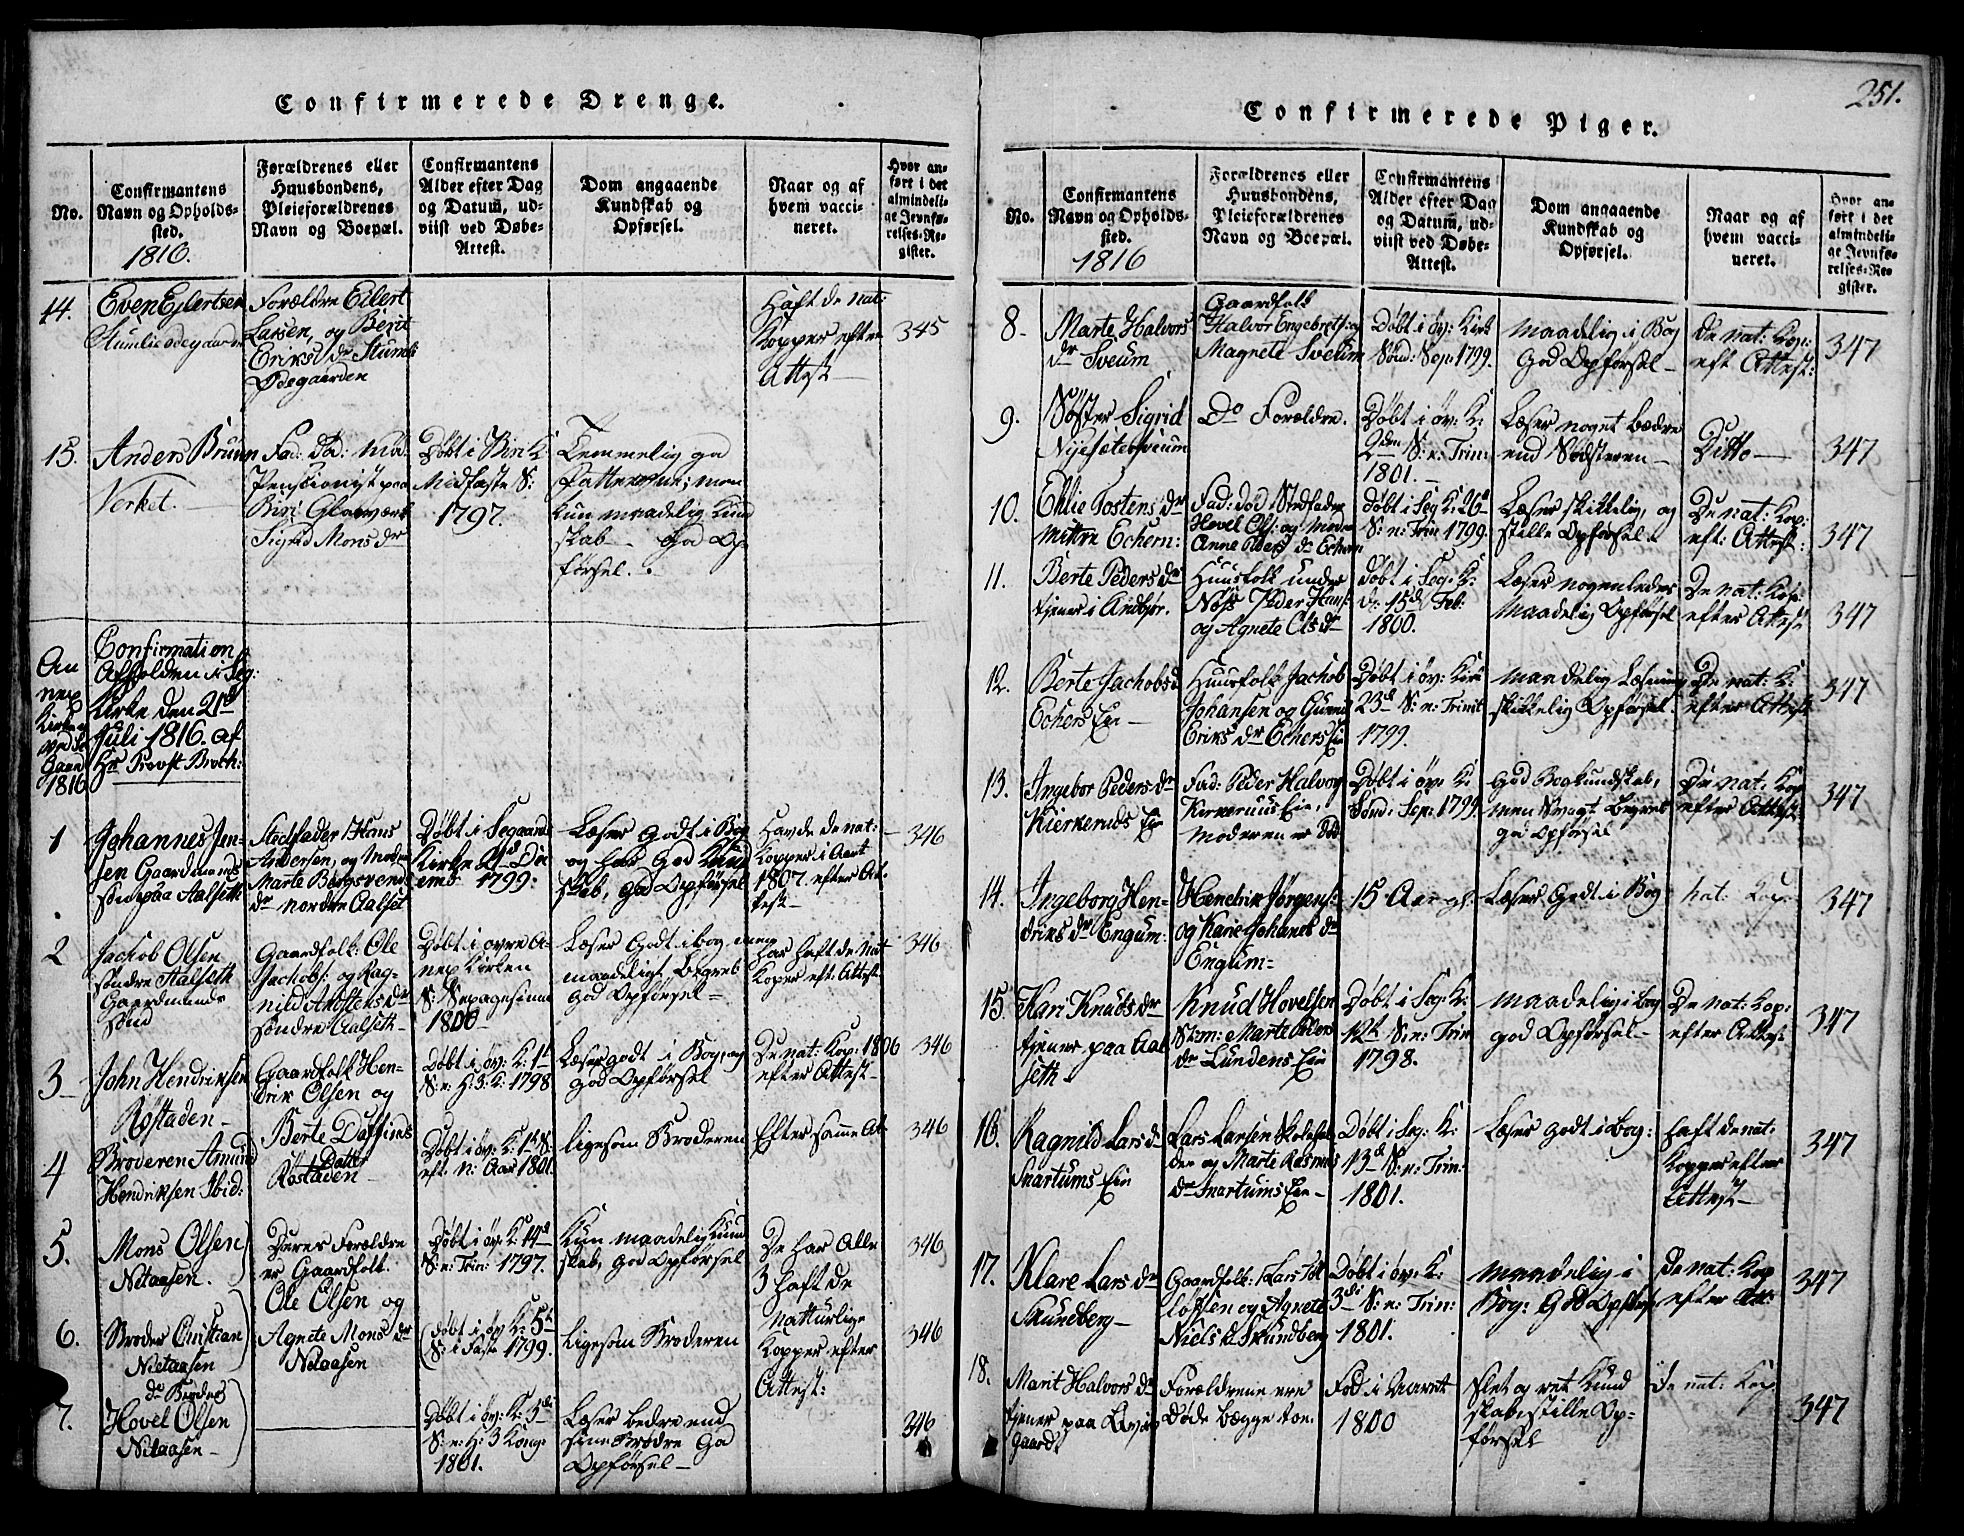 Confirmerede Drenge.
No.
Confirmantens
Navn og Opholds-
sted.
1816.
Forældrenes eller
Huusbondens,
Pleieforældrenes
Navn og Boepæl.
Confirmantens
Alder efter Dag
og Datum, ud-
viist ved Døbe-
Attest.
Dom angaaende
Kundskab og
Opførsel.
Naar og af
hvem vacci-
neret.
Hvor an-
ført i det
almindeli-
ge Jevnfø-
relses-Re-
gister.
14.
Even Ejlertsen
Forældre Eilert
Larsen, og Berit
Ødegaarden
Haft de nat:
Kopper efter
Attest
345
15.
Anders Bruun
Verket.
Fad: Død: Mod:
Pensionist paa
Biri Glasværk
Sigrid Mons dr
Døbt i Biri K:
Midfaste S:
1797.
Temmelig god
men
kun maadelig Kund
skab – God Op-
førsel.
An
nex
Kirke
1816
Confirmation
Afholden i Seg:
Kirke den 21de
Juli 1816. af
Hr Provst Broch:
1
Johannes Jen-
sen Gaardmands
søn paa Aalseth
Stedfader Hans
Andersen, og Moder
Marte
dr nordre Aalset
Døbt i Segaard
Kirke 21de Dec
emb: 1799:
Læser Godt i Bog
og har God Kund
skab, God Opførsel
Havde de nat:
Kopper i Aaret
1807. efter At-
test
346
2
Jachob Olsen
søndre Aalseth
Gaardmands
Sønd
Gaardfolk: Ole
Jachobs: og Rag-
nild
søndre Aalseth
Døbt i øvre A-
nex Kirken
S:
1800
Læser Godt i bog men
maadeligt Begreb
God Opførsel
Har haft de Nat
Koper eft. Attest
346
3
John Hendriksen
Røstaden
Gaardfolk Hen-
drik Olsen og
Berte
Datter
Røstaden
Døbt i øv: K: 1te
S: e: H: 3: K: 1798
Læser godt i Bog, og
God Opførsel
De nat: Kop: 1806
efter Attest
346
4
Broderen Amund
Hendriksen Ibid:
Døbt i øv: K: 1te S:
eft. n: Aar 1801.
ligesom Broderen
Efter samme At
346
5.
Mons Olsen
Netaasen.
Deres Forældre
er Gaardfolk
Ole Olsen og
Agnete Mons dr
Netaasen
Døbt i øv K: 14de
S: e: Trin: 1797.
Kun maadelig Kund
skab, God Opførsel
De har Alle
3 haft de
Natturlige
Kopper efter
Attest:
346
6.
Broder Christian
Nietaasen
Døbt i øv: K: 5te
S: i Faste 1799.
Ligesom Broderen
346
7.
do Broder
Hovel Olsen
Netaasen
Døbt i øv: K: 3de
S: e: H: 3 Kong:
1801.
Læser bedre end
sine Brødre God
Opførsel
346
251.
Confirmerede Piger.
No.
Confirmantens
Navn og Opholds-
sted.
1816
Forældrenes eller
Huusbondens,
Pleieforældrenes
Navn og Boepæl.
Confirmantens
Alder efter Dag
og Datum, ud-
viist ved Døbe-
Attest.
Dom angaaende
Kundskab og
Opførsel.
Naar og af
hvem vacci-
neret.
Hvor an-
ført i det
almindeli-
ge Jevnfø-
relses-Re-
gister.
8
Marte Halvors
dr Sveum
Gaardfolk
Halvor Engebrets: og
Magnete Sveum
Døbt i øv: Kirk
Sønd: Sep: 1799.
Maadelig i Bog
God Opførsel
De nat: Kop:
eft Attest:
347
9.
Søster Sigrid
Do Forældre.
Døbt i øv: K:
2den S: e: Trin:
1801.
Læser noget bedre
end Sødsteren
Ditto
347
10.
Ehlie Tostens dr
mittre Echern:
Fad: død, Stedfader
Hovel Ols: og Moder
Anne Peders dr Echern
Døbt i Seg K: 26de
S: e: Trin 1799.
Læser skikkelig, og
stille Opførsel.
De nat: Kop:
eft: Attest:
347
11.
Berte Peders dr
tjener i
Huusfolk under
Peder Hans:
og Agnete Ols dr
Døbt i Seg: K:
d: 15de Feb:
1800.
Læser nogenledes
Maadelig Opførsel
De nat: Kop:
efter Attest
347
12.
Berte Jachobs d
Echers Eie
Huusfolk Jachob
Johansen og
Eriks dr Echers Eie
Døbt i øv: Kirk
23de S: e: Trinit
1799.
Maadelig Læsning
skikkelig Opførsel.
De nat: K:
efter Attest
347
13.
Ingebor Peders dr
Kierkeruds Eie
Fad: Peder Halvors
Kierkeruds Eie,
Moderen er Død
Døbt i øv: K:
Sønd: Sep: 1799.
God Bogkundskab,
men Svagt Begreb
god Opførsel
De nat: Kop
efter Attest
347
14.
Ingeborg Hen-
driks dr Engum.
Hendrik Jørgens:
og Karie Johanes dr
Engum
15 Aar gl.
Læser Godt i Bog
nat: Kop:
347
15.
Kari Knuds dr
tjener paa Aal
seth
Knud Hovelsen
Marte Peders
dr Lundens Eie
Døbt i Seg: K:
12te S: e: Trin
1798.
Maadelig i bog
god Opførsel
De nat: Kop:
efter Attest
347
16.
Ragnild Lars dr
Snartums Eie
Lars Larsen
og Marte Rasmus
dr Snartums Eie
Døbt i Seg: K:
13de S: e: Trin:
1801.
Læser godt i Bog:
haft de nat:
Kopper efter
Attest
347
17.
Klare Lars dr
Skundberg
Gaardfolk: Lars
og Agnete
Niels d Skundberg
Døbt i øv: K:
3die S: e: Trin:
1801.
Maadelig i
Bog: God Opførsel
De nat: Kop
efter Att:
347
18.
Marit Halvors dr
tjener paa
Gaard
Forældrene ere
Døde begge toe.
Fød i Aaret
1800
Slet og ret Kund
skab, stille Op-
førsel
De nat: Kop
347